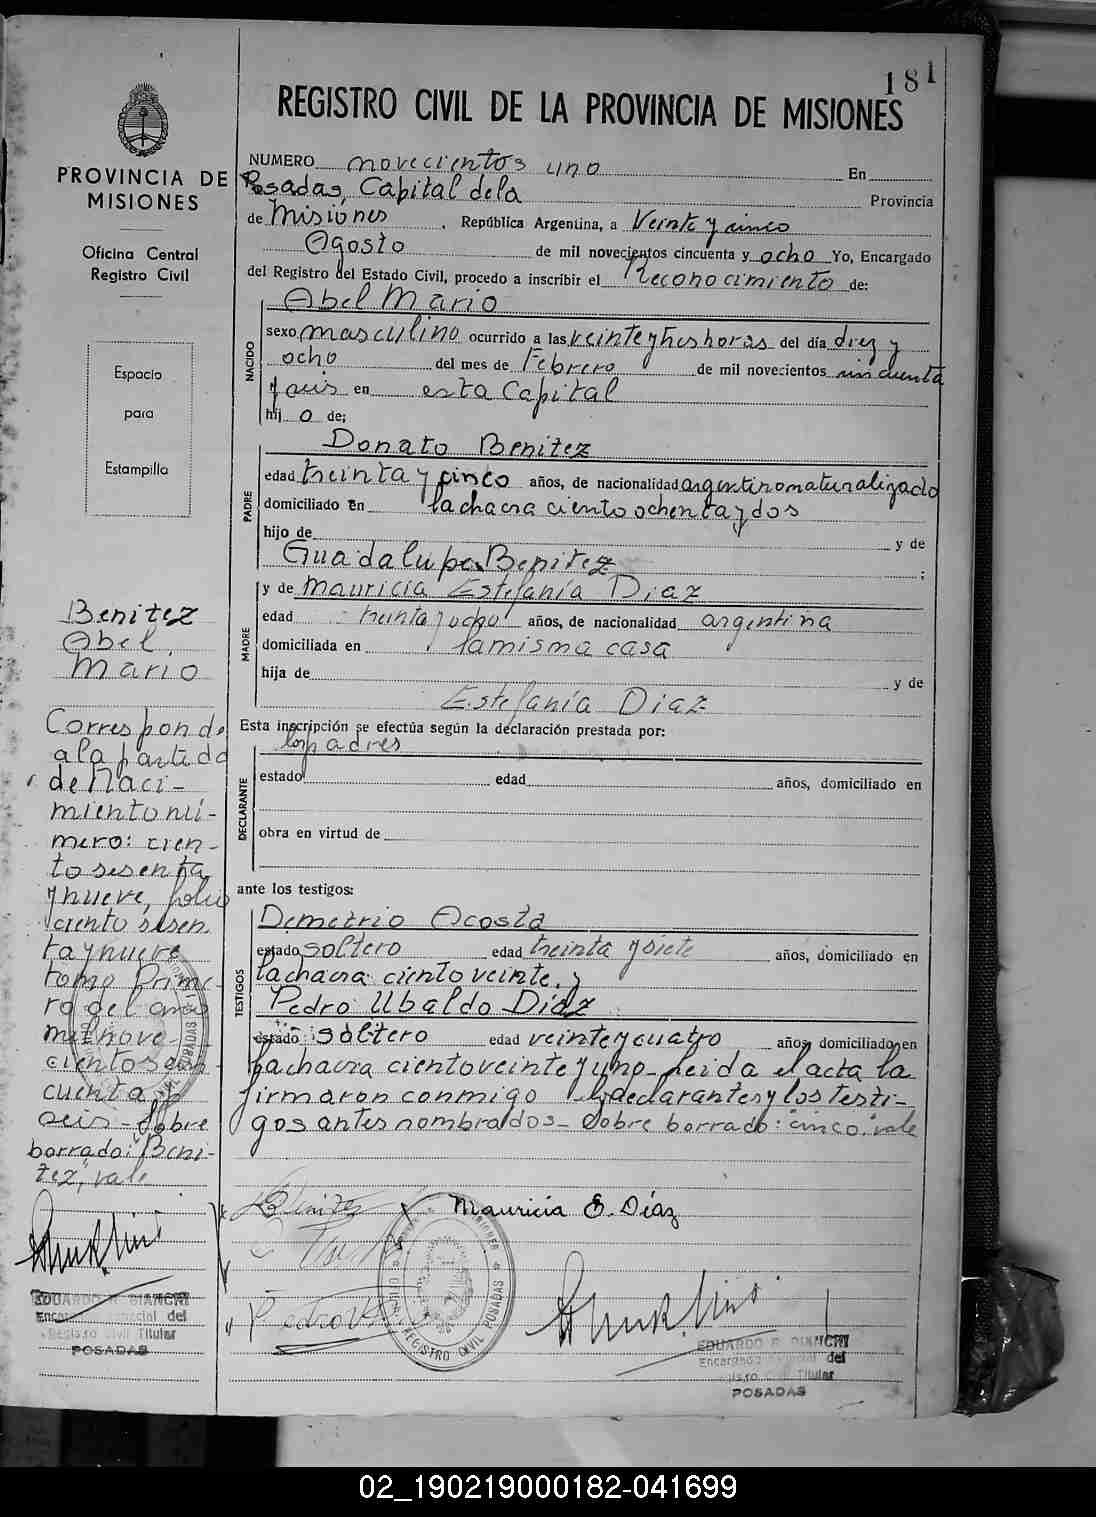 181
REGISTRO CIVIL DE LA PROVINCIA DE MISIONES
PROVINCIA DE
MISIONES
Oficina Central
Registro Civil
Espacio
para
Estampilla
NUMERO novecientos uno En
Posadas, Capital de la Provincia
de Misiones, República Argentina, a Veinte y cinco
Agosto de mil novecientos cincuenta y ocho Yo, Encargado
del Registro del Estado Civil, procedo a inscribir el Reconocimiento de:
Abel Mario
NACIDO
sexo masculino ocurrido a las veinte y tres horas del día diez y
ocho del mes de Febrero de mil novecientos cincuenta
y seis en esta Capital
hij o de;
Donato Benitez
PADRE
edad treinta y cinco años, de nacionalidad argentino naturalizado
domiciliado en la chacra ciento ochenta y dos
hijo de y de
Guadalupe Benitez ;
y de Mauricia Estefanía Diaz
MADRE
edad treinta y ocho años, de nacionalidad argentina
domiciliada en la misma casa
hija de y de
Estefanía Diaz
Esta inscripción se efectúa según la declaración prestada por:
los padres
DECLARANTE
estado edad años, domiciliado en
obra en virtud de
ante los testigos:
TESTIGOS
Demetrio Acosta
estado soltero edad treinta y siete años, domiciliado en
la chacra ciento veinte, y
Pedro Ubaldo Diaz
estado soltero edad veinte y cuatro años, domiciliado en
la chacra ciento veinte y uno - Leida el acta la
firmaron conmigo los declarantes y los testi-
gos antes nombrados - Sobre borrado: cinco, vale
Benitez
Abel
Mario
Corresponde
a la partida
de Naci-
miento nú-
mero: cien-
to sesenta
y nueve, folio
ciento sesen
ta y nueve
tomo Prime-
ro del año
mil nove-
cientos cin-
cuenta y
seis - Sobre
borrado: "Beni-
tez", vale
Benitez Mauricia E. Díaz
Pedro
REGISTRO CIVIL POSADAS
EDUARDO R. BIANCHI
Registro Civil Titular
POSADAS
EDUARDO R. BIANCHI
del
Titular
POSADAS
02_190219000182-041699